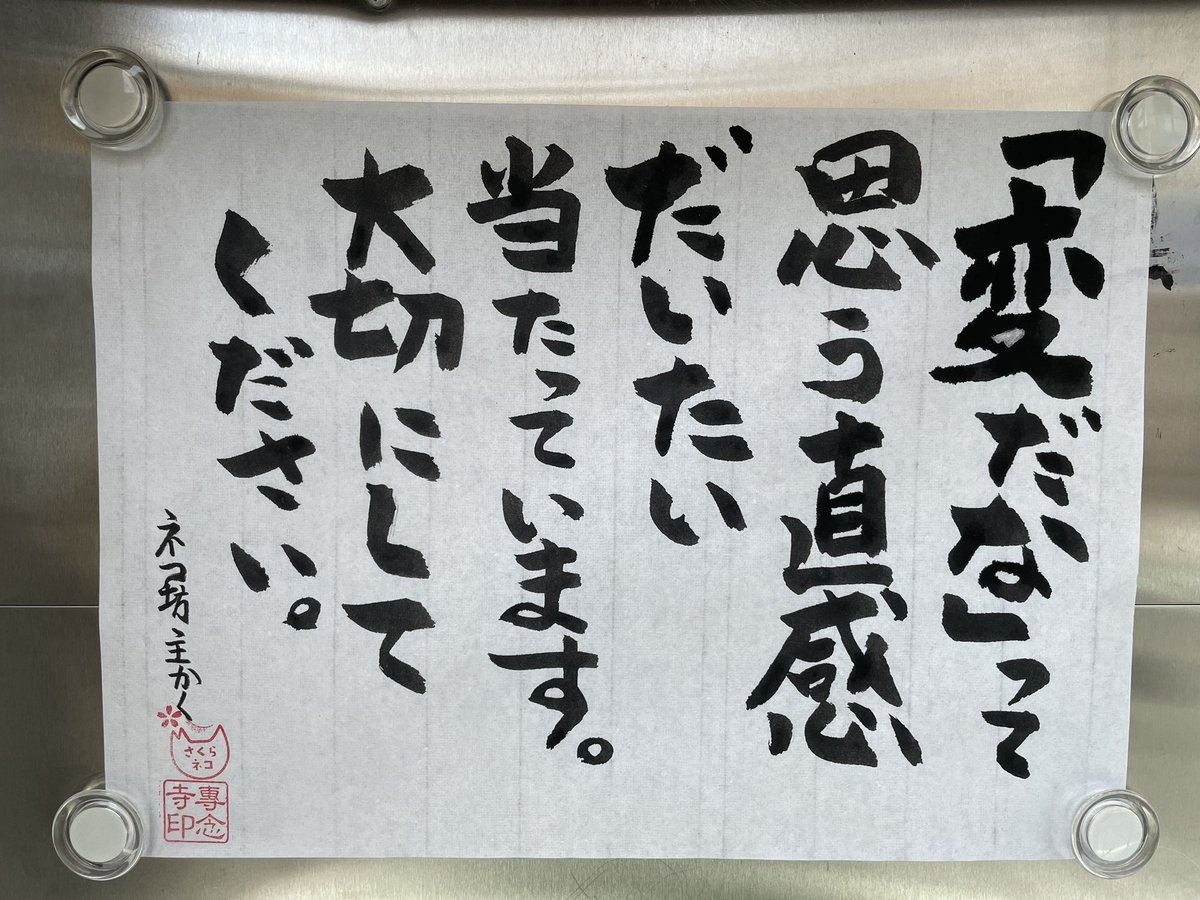 「変だな」って
思う直感
だいたい
当たっています。
大切にして
ください。
ネコ坊主かく
さくら
ネコ
専念
寺印